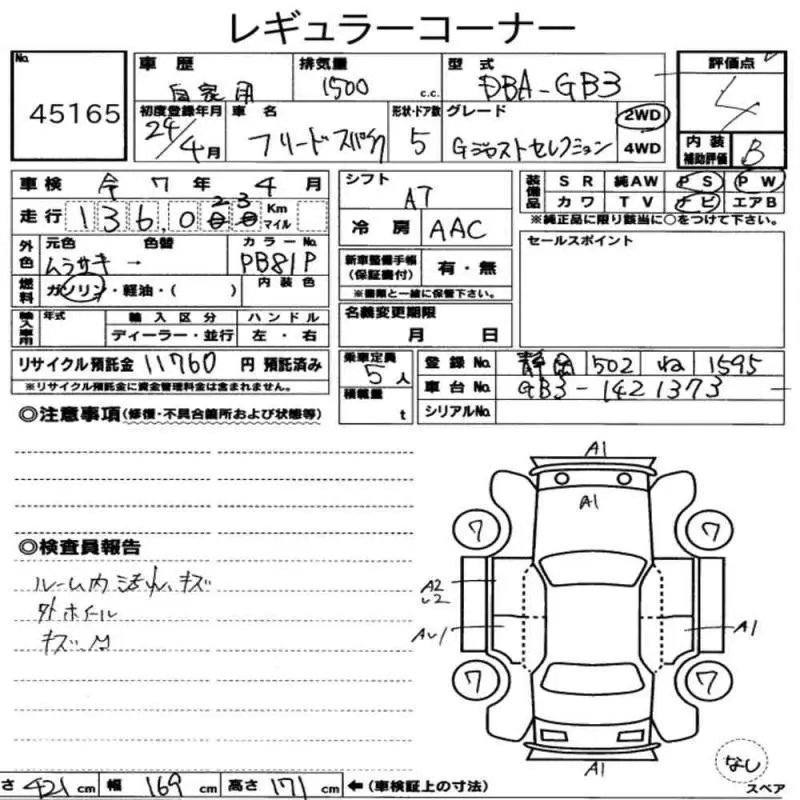 レギュラーコーナー
No. 45165
車歴 自家用
排気量 1500 c.c.
型式 DBA-GB3
評価点 4
初度登録年月 24/4月
車名 フリードスパイク
形状・ドア数 5
グレード Gジャストセレクション
2WD
4WD
内装補助評価 B
車検 令7年4月
走行 136,023 Km マイル
シフト AT
冷房 AAC
装備品 SR 純AW PS PW
カワ TV ナビ エアB
※純正品に限り該当に○をつけて下さい。
外色 元色 色替 カラーNo.
ムラサキ → PB81P
燃料 ガソリン・軽油・( ) 内装色
新車整備手帳(保証書付) 有・無
※書類と一緒に保管下さい。
セールスポイント
輸入車用 年式 輸入区分 ハンドル
ディーラー・並行 左・右
名義変更期限
月 日
リサイクル預託金 11760 円 預託済み
※リサイクル預託金に資金管理料金は含まれません。
乗車定員 5人
積載量 t
登録No. 静岡 502 ね 1595
車台No. GB3-1421373
シリアルNo.
◎注意事項(修復・不具合箇所および状態等)
◎検査員報告
ルーム内 汚れ、キズ
外ホイール
キズ、M
A1
A1
7
7
A2
A1
7
7
A1
なし
スペア
さ 421 cm 幅 169 cm 高さ 171 cm ←(車検証上の寸法)